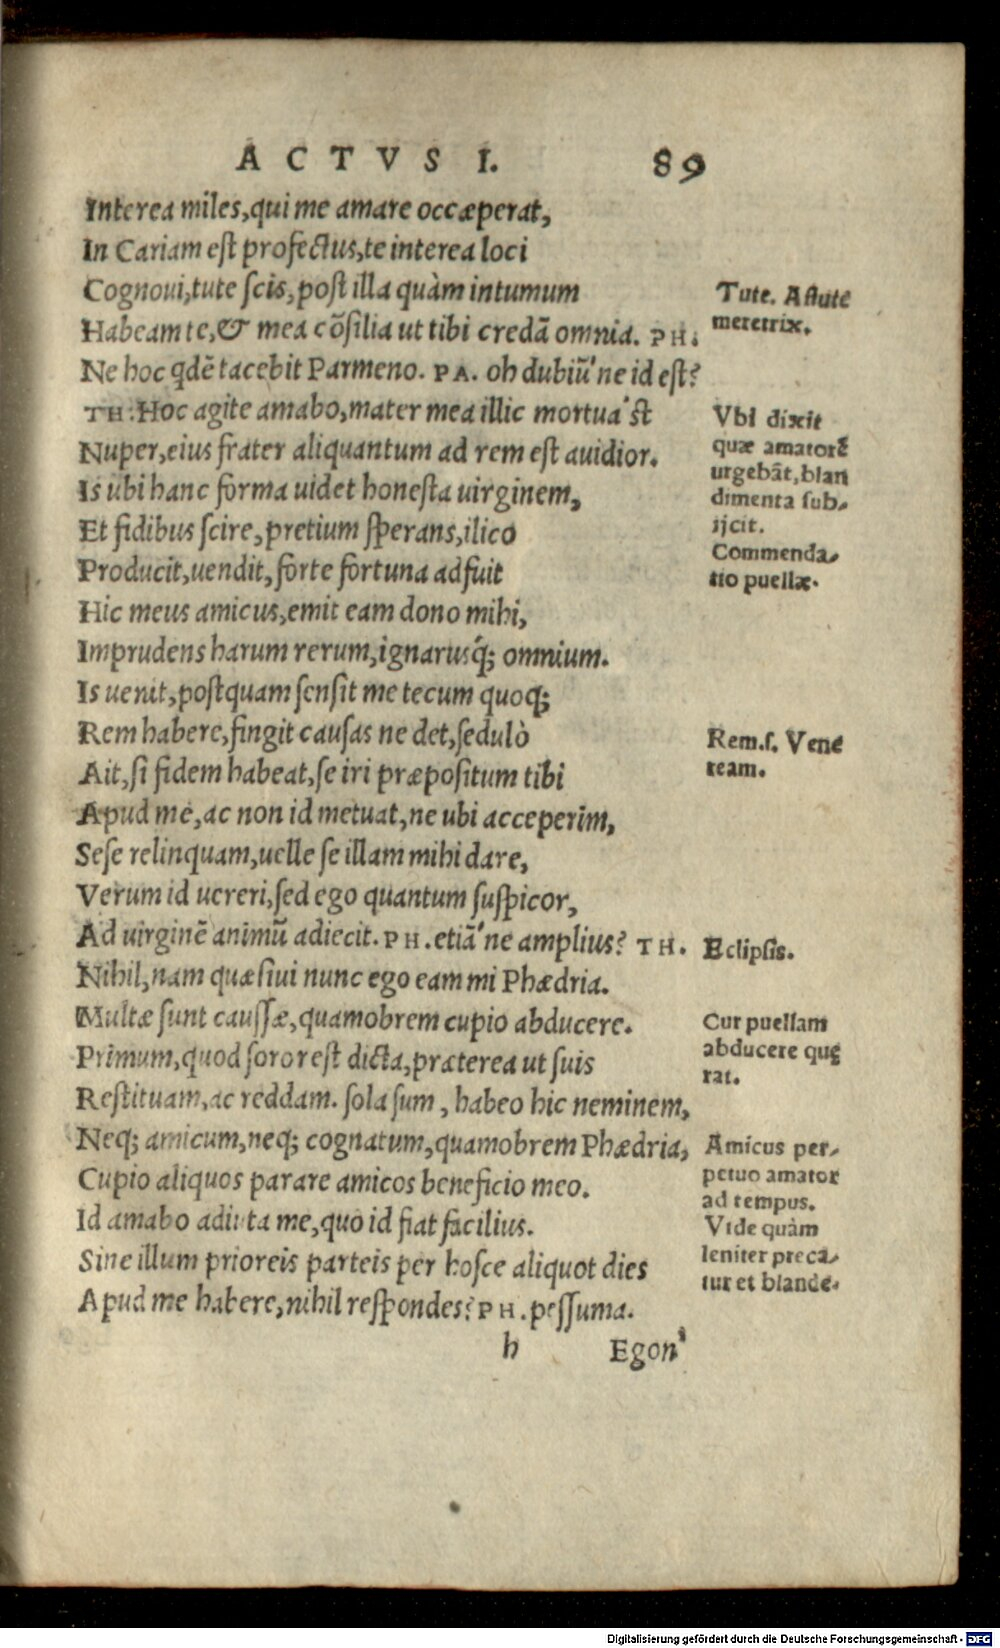 ACTVS I. 89
Interea miles, qui me amare occæperat,
In Cariam est profectus, te interea loci
Cognoui, tute scis, post illa quàm intumum
Habeam te, & mea cõsilia ut tibi credã omnia. PH.
Ne hoc qdẽ tacebit Parmeno. PA. oh dubiũ'ne id est?
TH. Hoc agite amabo, mater mea illic mortua'st
Nuper, eius frater aliquantum ad rem est auidior.
Is ubi hanc forma uidet honesta uirginem,
Et fidibus scire, pretium sperans, ilico
Producit, uendit, forte fortuna adfuit
Hic meus amicus, emit eam dono mihi,
Imprudens harum rerum, ignarusq́; omnium.
Is uenit, postquam sensit me tecum quoq;
Rem habere, fingit causas ne det, sedulò
Ait, si fidem habeat, se iri præpositum tibi
Apud me, ac non id metuat, ne ubi acceperim,
Sese relinquam, uelle se illam mihi dare,
Verum id uereri, sed ego quantum suspicor,
Ad uirginẽ animũ adiecit. PH. etiã'ne amplius? TH.
Nihil, nam quæsiui nunc ego eam mi Phædria.
Multæ sunt caussæ, quamobrem cupio abducere.
Primum, quod soror est dicta, præterea ut suis
Restituam, ac reddam. sola sum, habeo hic neminem,
Neq; amicum, neq; cognatum, quamobrem Phædria,
Cupio aliquos parare amicos beneficio meo.
Id amabo adiuta me, quo id fiat facilius.
Sine illum prioreis parteis per hosce aliquot dies
Apud me habere, nihil respondes? PH. pessuma.
h Egon'
Tute. Astute
meretrix.
Vbi dixit
quæ amatorẽ
urgebãt, blan
dimenta sub-
ijcit.
Commenda-
tio puellæ.
Rem. s. Vene
ream.
Eclipsis.
Cur puellam
abducere quę
rat.
Amicus per-
petuo amator
ad tempus.
Vide quàm
leniter preca-
tur et blande.
Digitalisierung gefördert durch die Deutsche Forschungsgemeinschaft - DFG